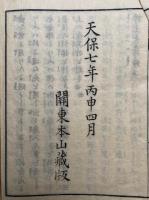 天保七年丙申四月
關東本山藏版